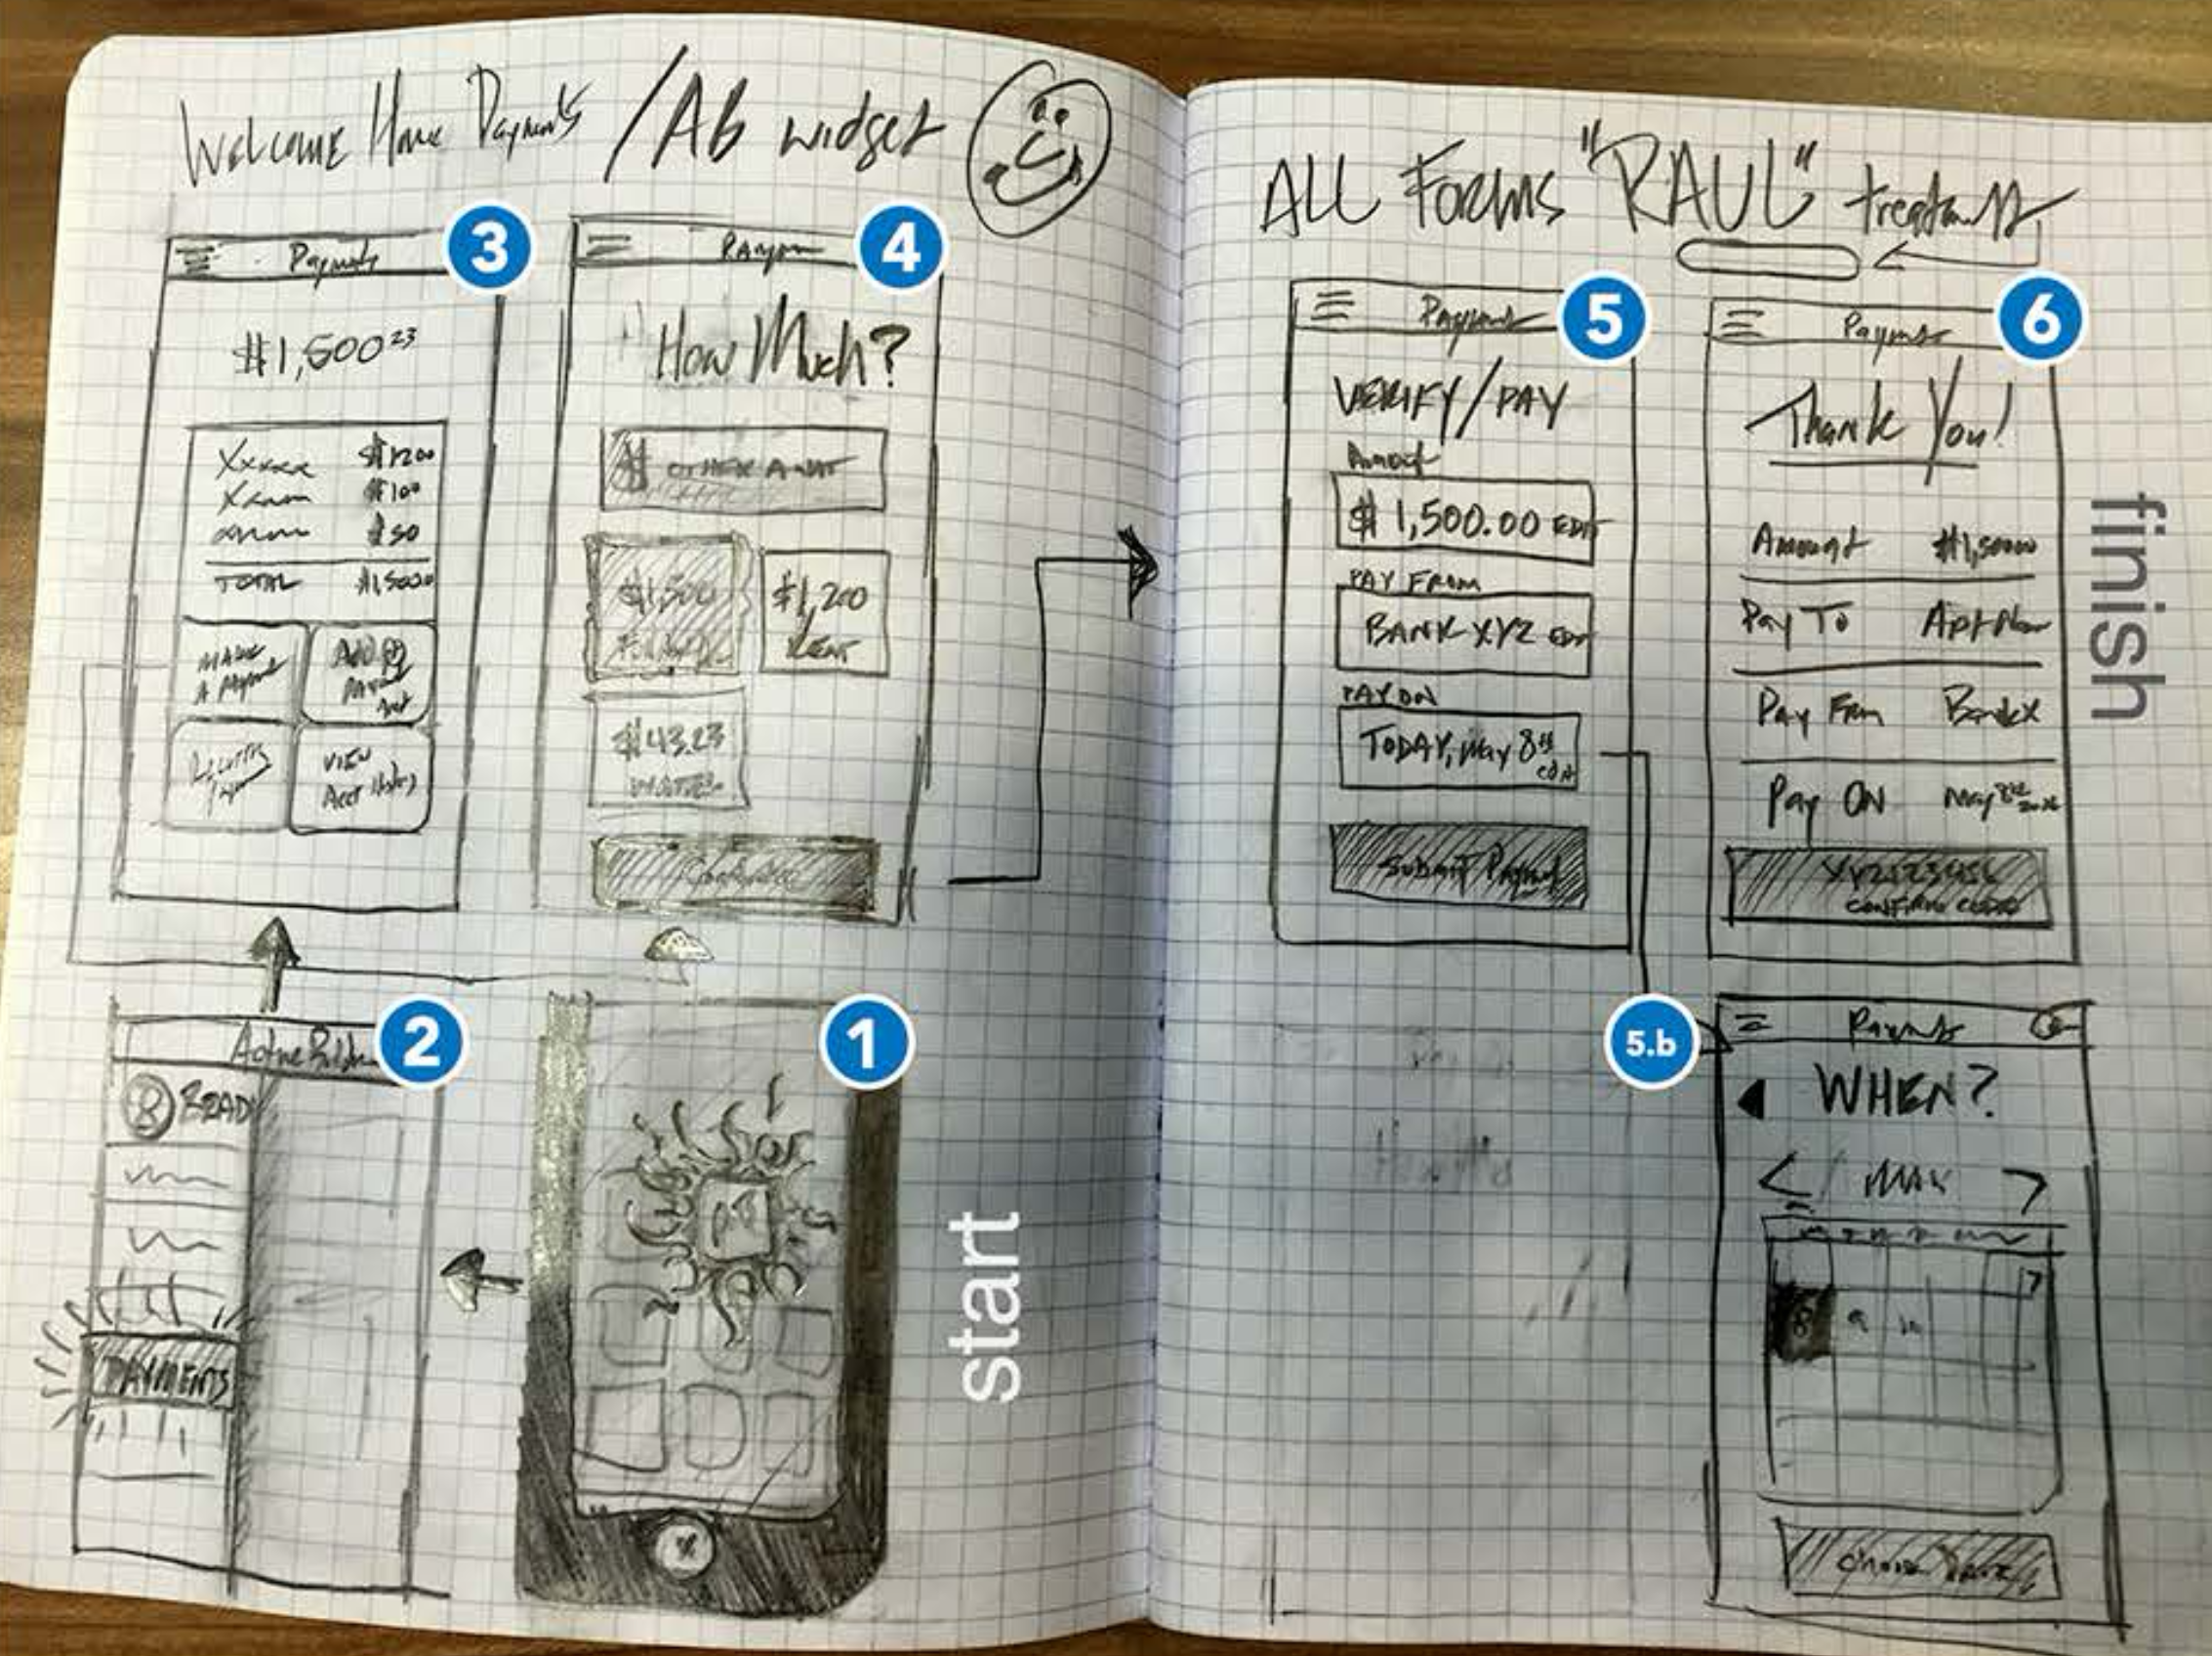 Welcome Home Payments / AB widget
3
Payments
$1,500 23
Xxxxx $1200
$100
$50
TOTAL $1,5000
MAKE A Payment
ADD
VIEW Acct History
4
How Much?
$ OTHER AMNT
$1,500
$1,200
RENT
$43.23
WATER
2
BRAD
PAYMENTS
1
start
ALL FORMS "RAUL" treatment
5
Payment
VERIFY/PAY
Amount
$1,500.00 EDIT
PAY FROM
BANK XYZ EDIT
PAY ON
TODAY, May 8th EDIT
Submit Payment
6
Payments
Thank You!
Amount $1,50000
Pay To
Pay From Bank X
Pay ON May 8th
CONFIRM CODE
finish
5.b
Payments
WHEN?
< MAY >
7
8 9 10